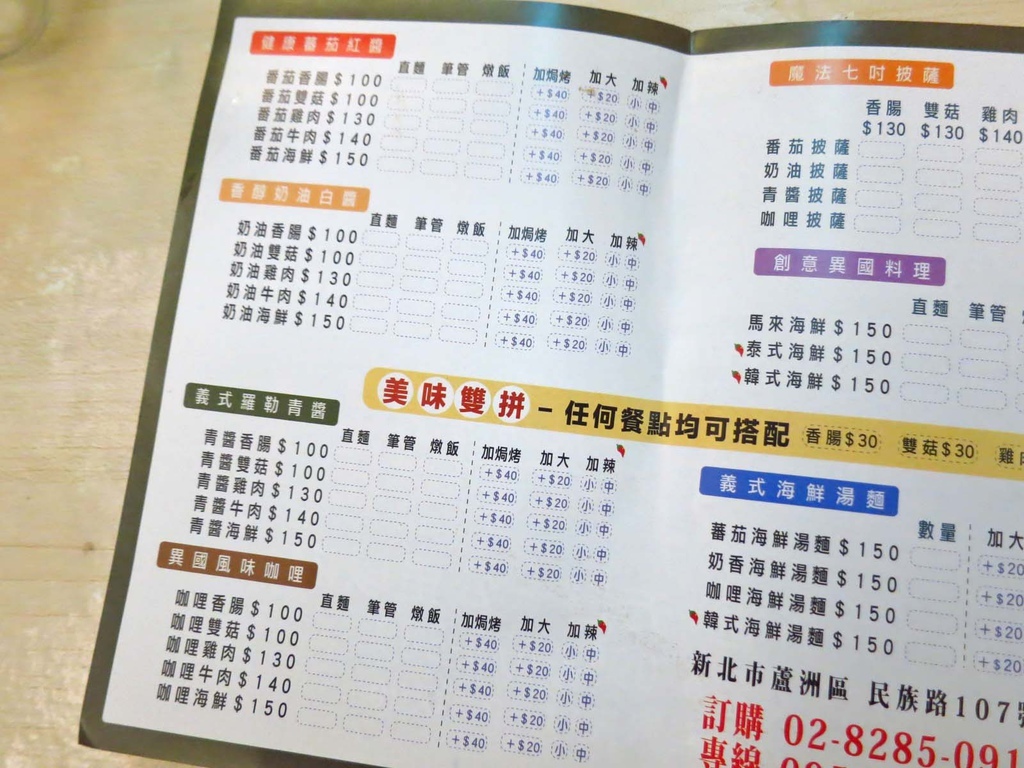 健康蕃茄紅醬
直麵 筆管 燉飯 加焗烤 加大 加辣
番茄香腸$100 +$40 +$20 小 中
番茄雙菇$100 +$40 +$20 小 中
番茄雞肉$130 +$40 +$20 小 中
番茄牛肉$140 +$40 +$20 小 中
番茄海鮮$150 +$40 +$20 小 中
香醇奶油白醬
直麵 筆管 燉飯 加焗烤 加大 加辣
奶油香腸$100 +$40 +$20 小 中
奶油雙菇$100 +$40 +$20 小 中
奶油雞肉$130 +$40 +$20 小 中
奶油牛肉$140 +$40 +$20 小 中
奶油海鮮$150 +$40 +$20 小 中
魔法七吋披薩
香腸 雙菇 雞肉
$130 $130 $140
番茄披薩
奶油披薩
青醬披薩
咖哩披薩
創意異國料理
直麵 筆管
馬來海鮮$150
泰式海鮮$150
韓式海鮮$150
美味雙拼-任何餐點均可搭配 香腸$30 雙菇$30 雞肉
義式羅勒青醬
直麵 筆管 燉飯 加焗烤 加大 加辣
青醬香腸$100 +$40 +$20 小 中
青醬雙菇$100 +$40 +$20 小 中
青醬雞肉$130 +$40 +$20 小 中
青醬牛肉$140 +$40 +$20 小 中
青醬海鮮$150 +$40 +$20 小 中
異國風味咖哩
直麵 筆管 燉飯 加焗烤 加大 加辣
咖哩香腸$100 +$40 +$20 小 中
咖哩雙菇$100 +$40 +$20 小 中
咖哩雞肉$130 +$40 +$20 小 中
咖哩牛肉$140 +$40 +$20 小 中
咖哩海鮮$150 +$40 +$20 小 中
義式海鮮湯麵
數量 加大
蕃茄海鮮湯麵$150 +$20
奶香海鮮湯麵$150 +$20
咖哩海鮮湯麵$150 +$20
韓式海鮮湯麵$150 +$20
新北市蘆洲區 民族路107號
訂購 02-8285-091
專線